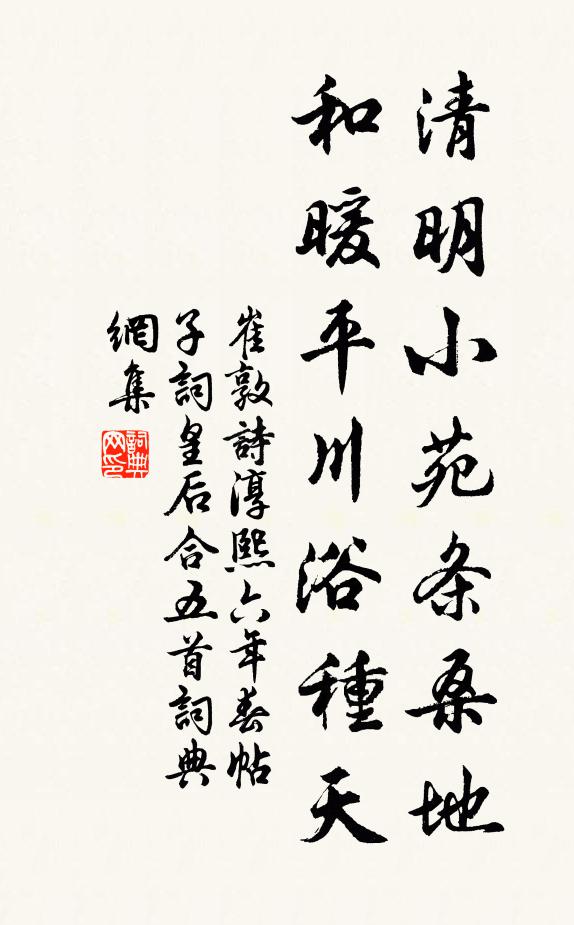 清明小苑条桑地
和暖平川浴種天
崔敦詩淳熙六年春帖
子詞皇后合五首詞典
網集
詞典网印